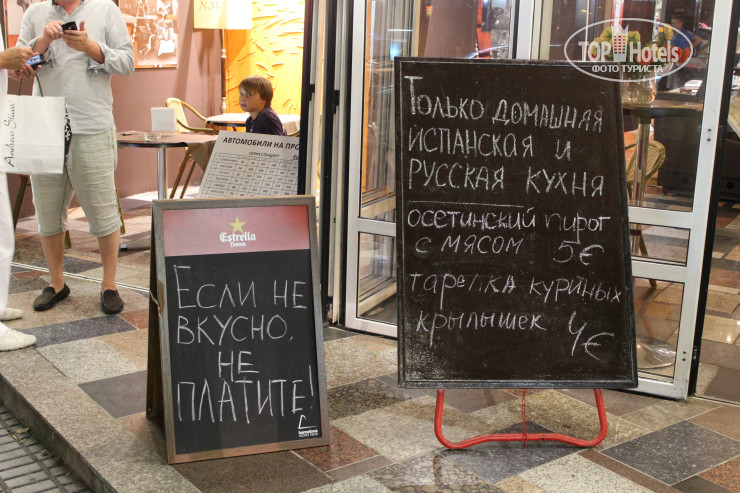 TOP Hotels
ФОТО ТУРИСТА
Только домашняя
испанская и
русская кухня
осетинский пирог
с мясом 5€
тарелка куриных
крылышек 4€
АВТОМОБИЛИ НА ПРО
Estrella
Damm
Если не
вкусно,
не
платите!